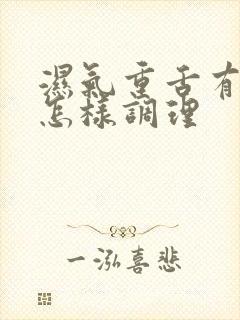 濕氣重舌有
怎樣調理
一泓喜悲